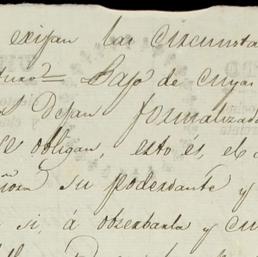 exijan las circunsta
Bajo de cuyas
Dejan formalizado
se obligan, esto és, el
su poderdante y
si, á obserbarla y cu